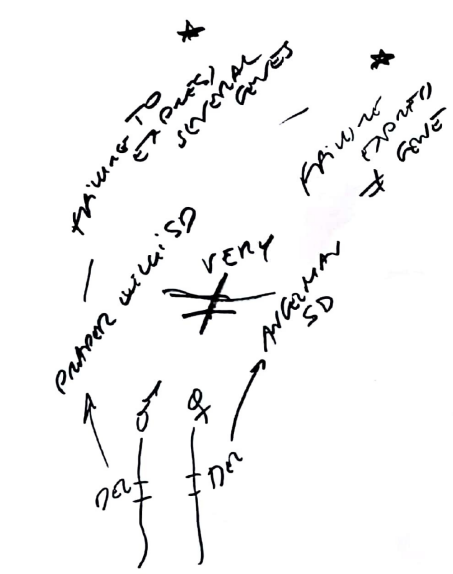 ★
FAILURE TO
EXPRESS
SEVERAL
GENES
★
FAILURE
EXPRESS
1 GENE
PRADER WILLI SD
VERY
≠
ANGELMAN
SD
♂ ♀
DEL
DEL